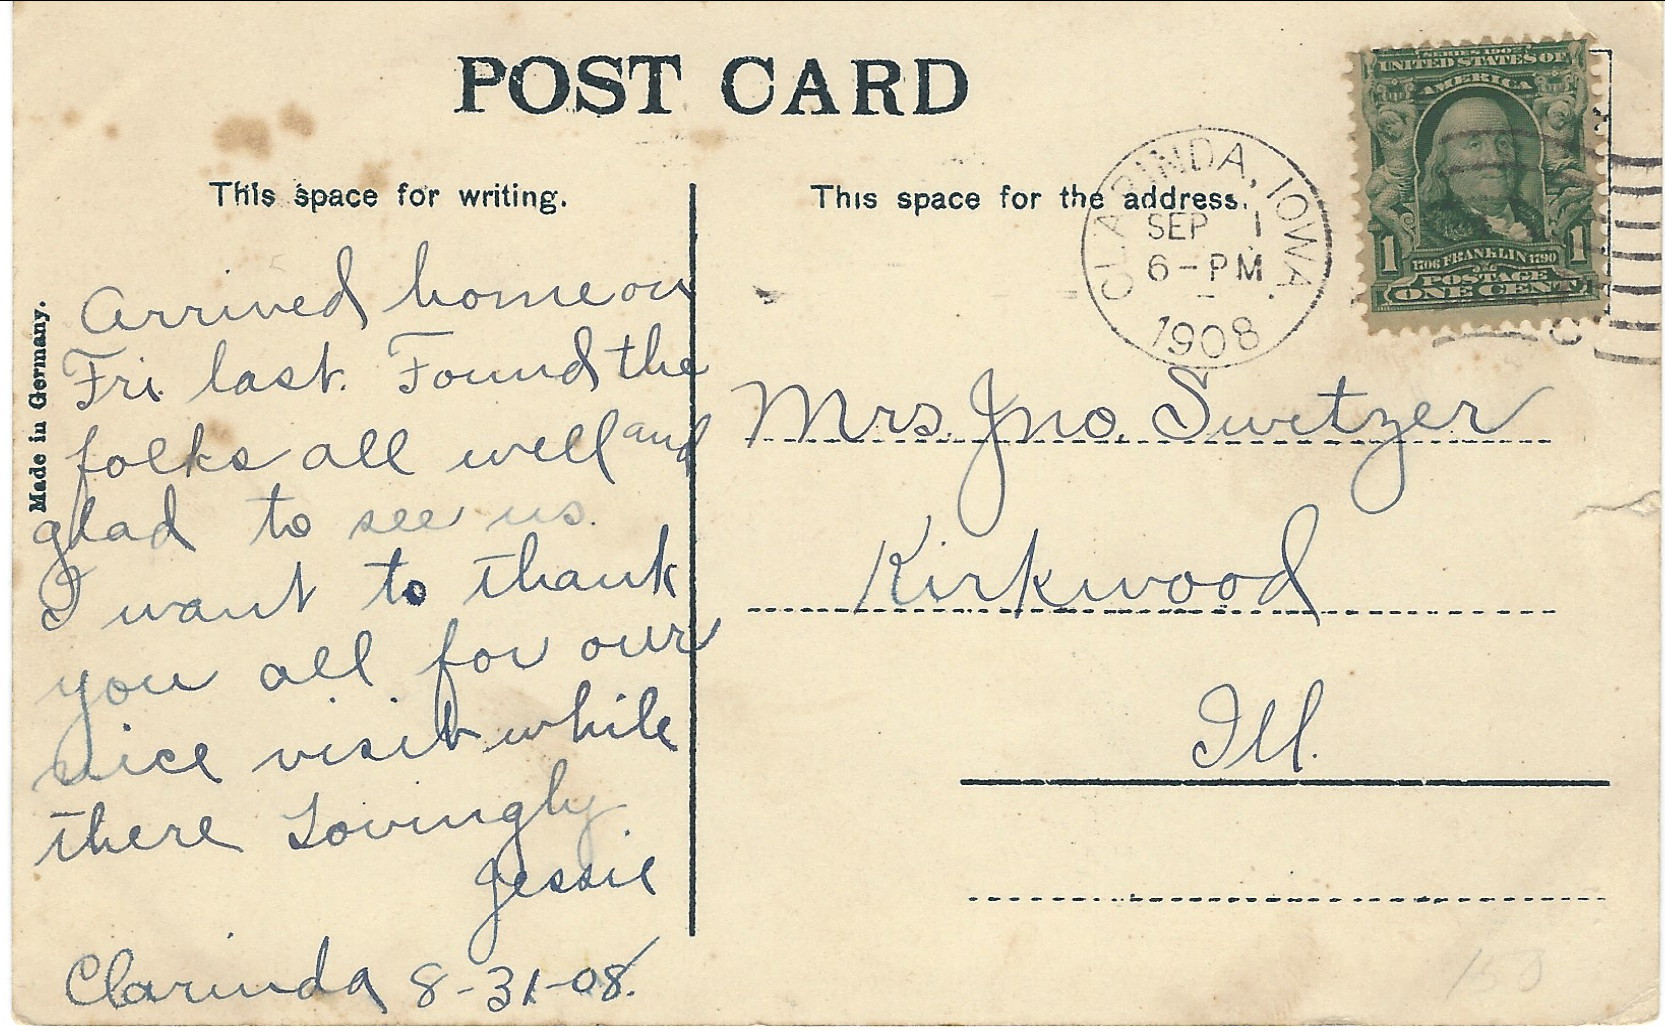 POST CARD
This space for writing.
This space for the address.
Made in Germany.
SERIES 1902
UNITED STATES OF
AMERICA
1 1
1706 FRANKLIN 1790
POSTAGE
ONE CENT
CLARINDA, IOWA.
SEP 1
6-PM
1908
Arrived home on
Fri last. Found the
folks all well and
glad to see us.
I want to thank
you all for our
nice visit while
there Lovingly
Jessie
Clarinda 8-31-08.
Mrs. Jno. Switzer
Kirkwood
Ill.
150